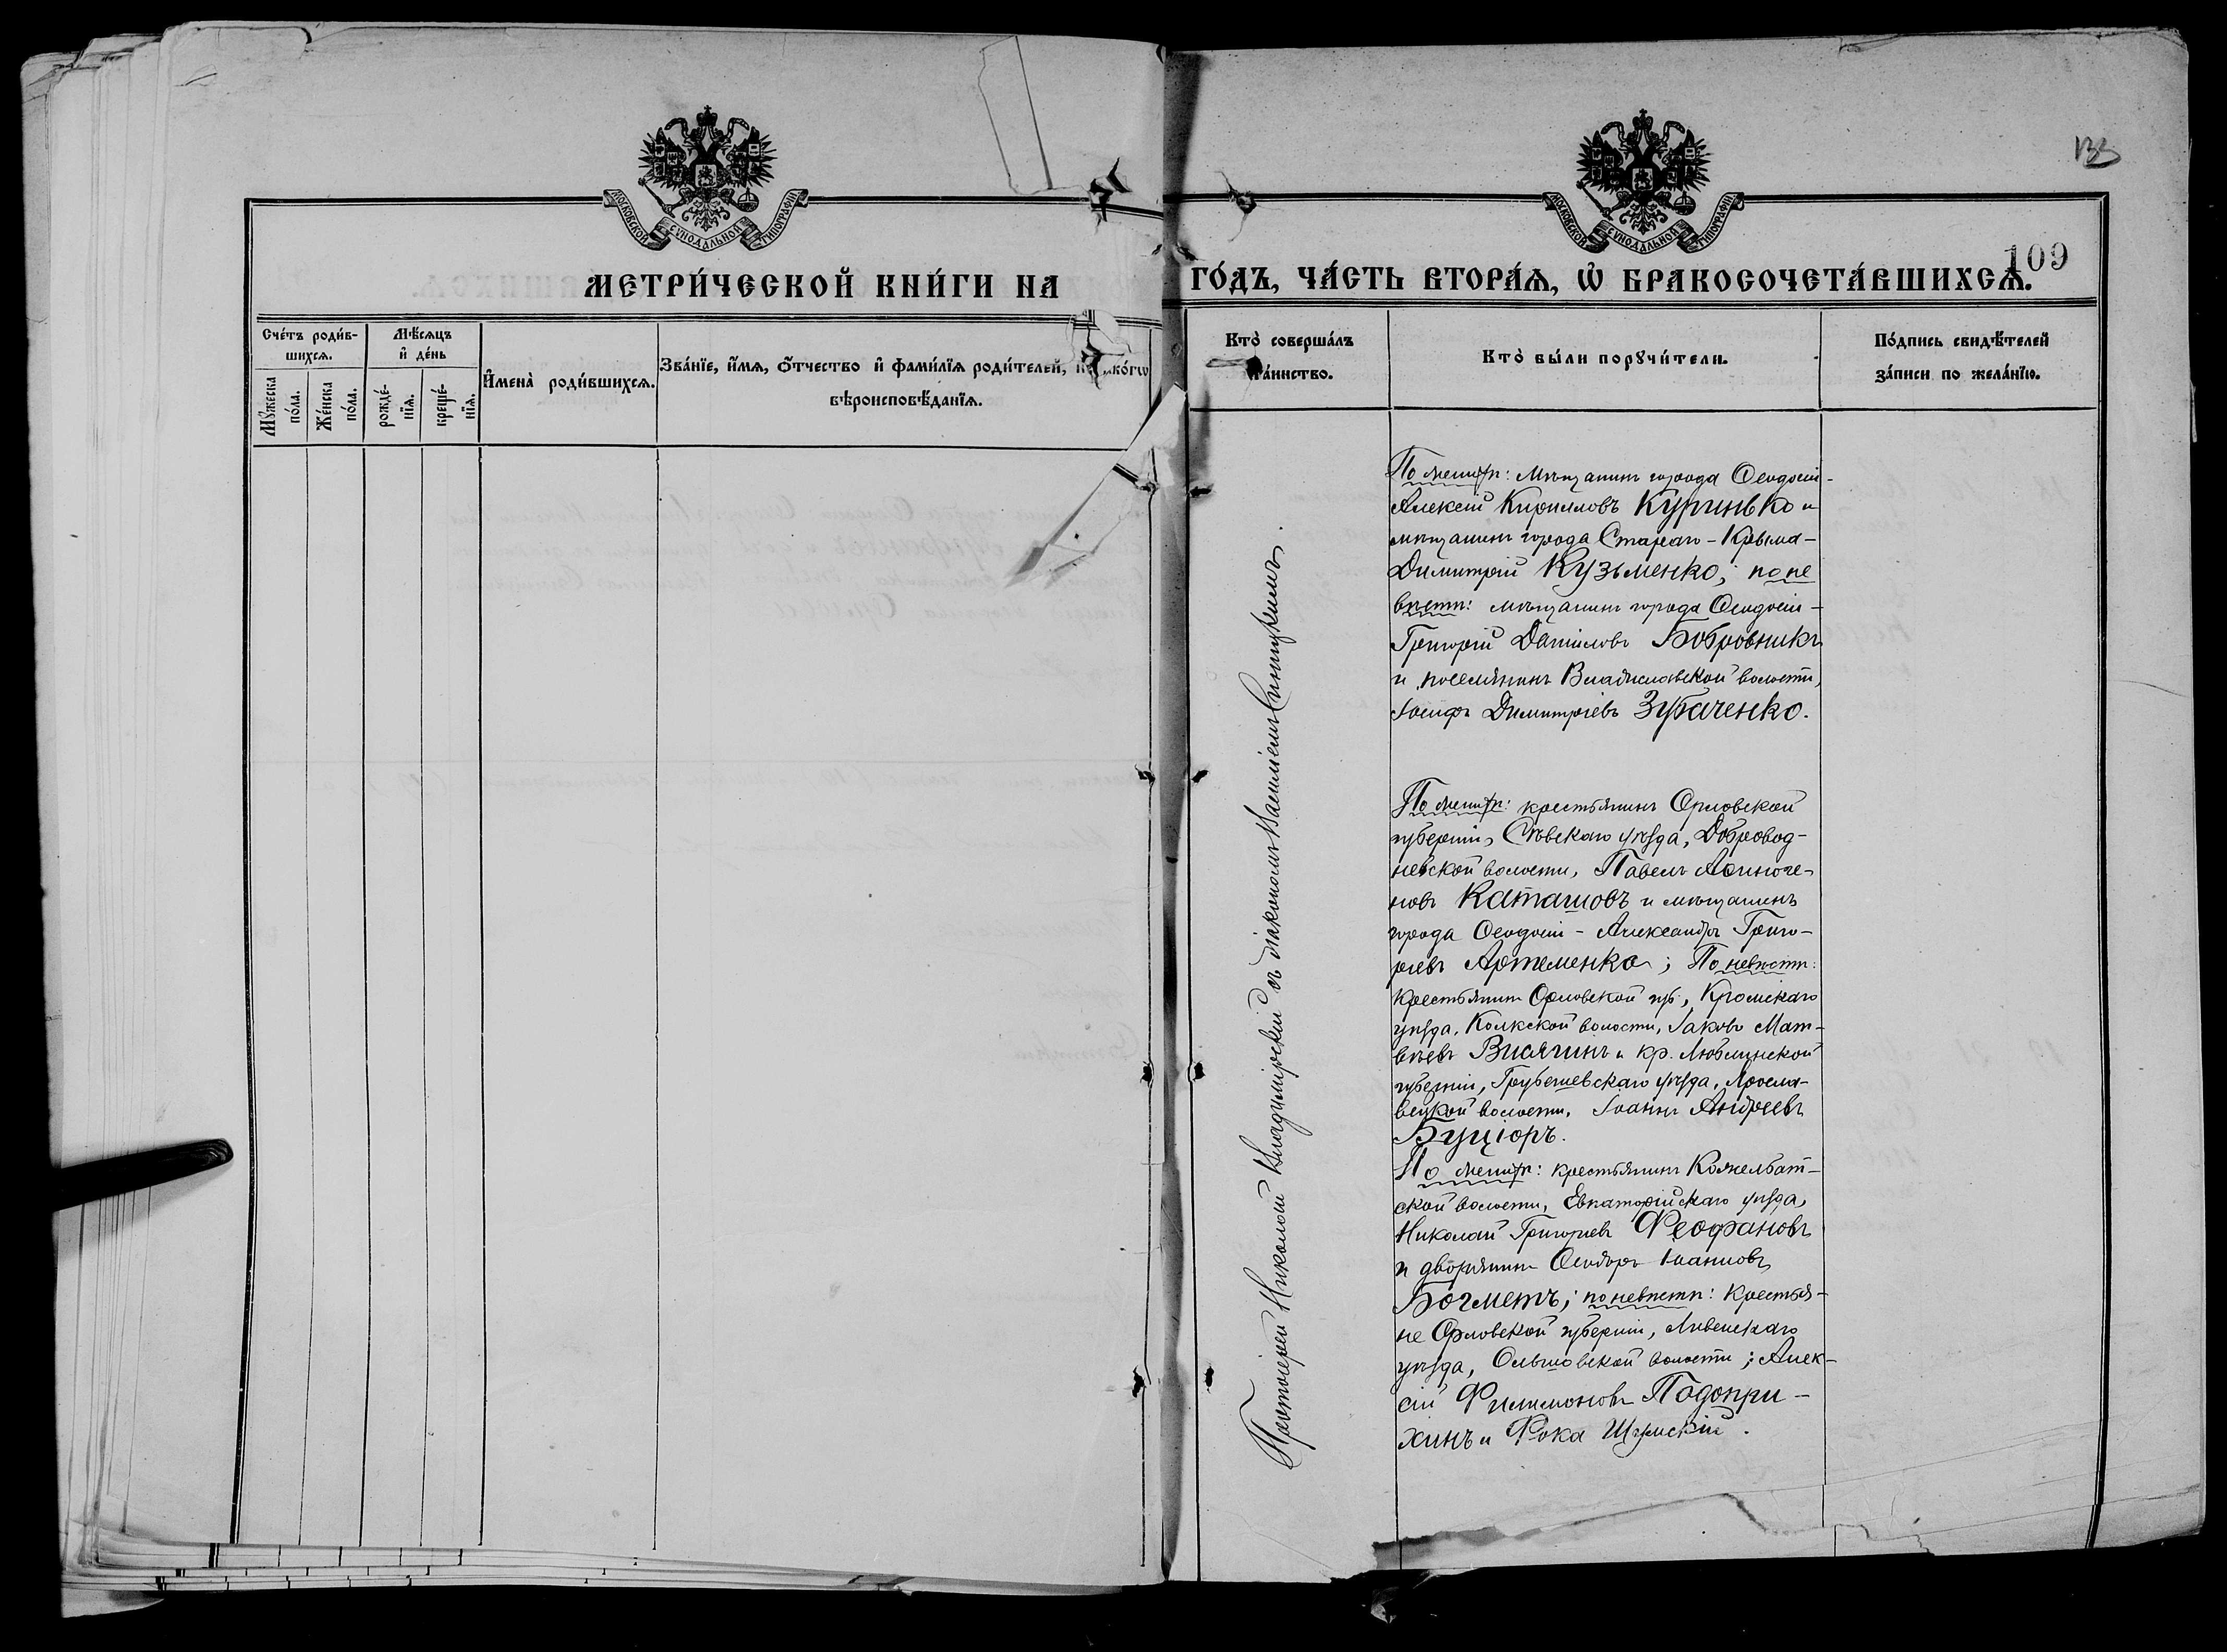 МОСКОВСКОЙ СѴНОДАЛЬНОЙ ТИПОГРАФІИ
МЕТРИ́ЧЕСКОЙ КНИ́ГИ НА
Сче́тъ роди́в-
шихсѧ.
Мꙋ́жеска
по́ла.
Же́нска
по́ла.
Мѣ́сѧцъ
и҆ де́нь
рожде́-
нїѧ.
креще́-
нїѧ.
И҆мена̀ роди́вшихсѧ.
Зва́нїе, и҆́мѧ, ѻ҆́тчество и҆ фами́лїѧ роди́телей,
вѣроисповѣ́данїѧ.
133
МОСКОВСКОЙ СѴНОДАЛЬНОЙ ТИПОГРАФІИ
109
ГО́ДЪ, ЧА́СТЬ ВТОРА́Ѧ, Ѽ БРАКОСОЧЕТА́ВШИХСѦ.
Кто̀ соверша́лъ
та́инство.
Кто̀ бы́ли порꙋчи́тели.
По́дпись свидѣ́телей
за́писи по жела́нїю.
Протоіерей Николай Владимірскій съ діакономъ Василіемъ Синицкимъ.
По женихѣ: мѣщанинъ города Ѳеодосіи-
Алексій Кирилловъ Куринько и
мѣщанинъ города Стараго-Крыма-
Димитрій Кузьменко; по не
вѣстѣ: мѣщанинъ города Ѳеодосіи-
Григорій Даниловъ Бобровникъ
и поселянинъ Владиславской волости,
Іосифъ Димитріевъ Зубаченко.
По женихѣ: крестьянинъ Орловской
губерніи, Сѣвскаго уѣзда, Добровод-
невской волости, Павелъ Аѳиноге-
новъ Каташовъ и мѣщанинъ
города Ѳеодосіи - Александръ Григо-
рьевъ Артеменко; По невѣстѣ:
крестьянинъ Орловской губ., Кромскаго
уѣзда, Колкской волости, Іаковъ Мат-
вѣевъ Висячинъ и кр. Люблинской
губерніи, Грубешевскаго уѣзда, Яросла-
вецкой волости, Іоаннъ Андреевъ
Буціоръ.
По женихѣ: крестьянинъ Коджелбат-
ской волости, Евпаторійскаго уѣзда,
Николай Григорьевъ Феофановъ
и дворянинъ Ѳеодоръ Іоанновъ
Богметъ; по невѣстѣ: Крестья-
не Орловской губерніи, Ливенскаго
уѣзда, Ольшовской волости; Алек-
сій Филимоновъ Подопри-
хинъ и Фока